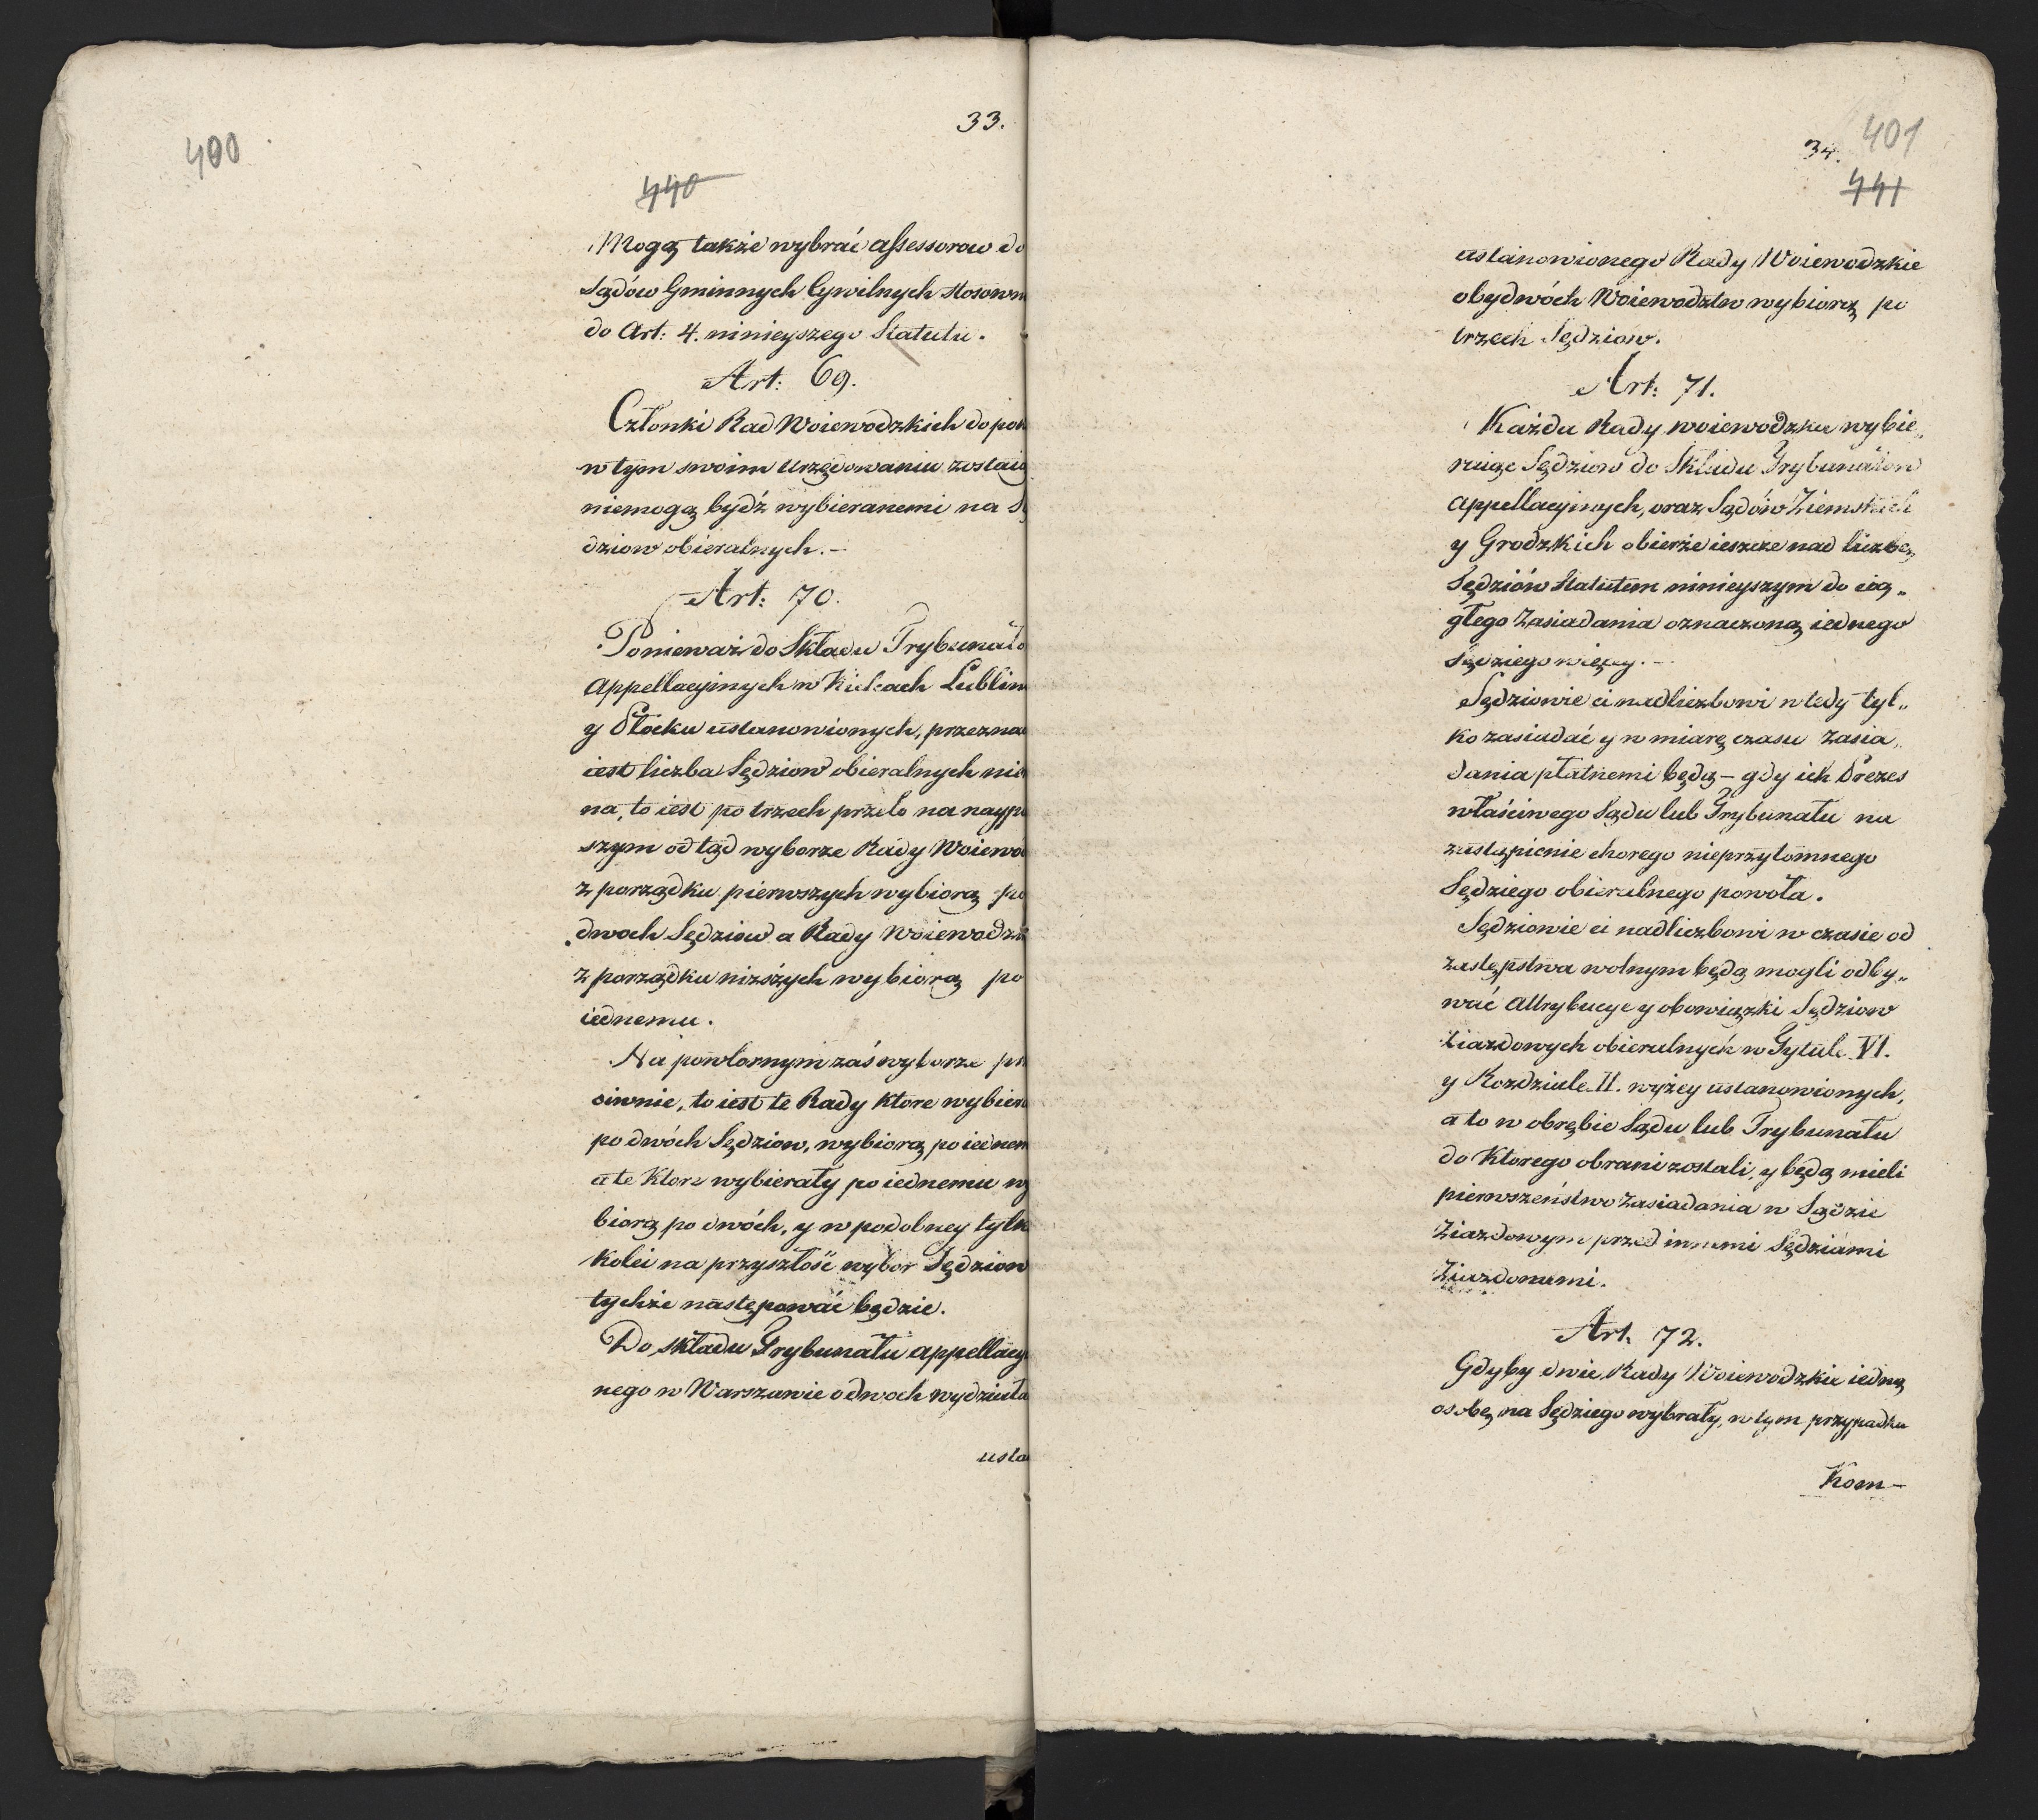 400
33.
440
Mogą także wybrać assessorow do
Sądów Gminnych Cywilnych stosown
do Art: 4. ninieyszego Statutu.
Art: 69.
Członki Rad Woiewodzkich dopok
w tym swoim urzędowaniu zostaią
niemogą bydź wybieranemi na Sę
dziow obieralnych.-
Art: 70.
Ponieważ do Składu Trybunało
Appellacyinych w Kielcach Lublin
y Płocku ustanowionych, przezna
iest liczba Sędziow obieralnych nie
na, to iest po trzech przeto na naypi
szym odtąd wyborze Rady Woiewod
z porządku pierwszych wybiorą po
dwoch Sędziow a Rady Woiewodzk
z porządku niższych wybiorą po
iednemu.
Na powtornym zaś wyborze prz
ciwnie, to iest te Rady ktore wybiera
po dwóch Sędziow, wybiorą po iednem
a te ktore wybierały po iednemu wy
biorą po dwóch, y w podobney tylk
kolei na przyszłość wybor Sędziow
tychże następować będzie.
Do składu Trybunału appellacy
nego w Warszawie o dwoch wydziała
usta
401
34.
441
ustanowionego Rady Woiewodzkie
obydwóch Woiewodztw wybiorą po
trzech Sędziow.
Art: 71.
Każda Rady woiewodzka wybie„
raiąc Sędziow do Składu Trybunałow
Appellacyinych, oraz Sądów Ziemskich
y Grodzkich obierze ieszcze nad liczbę
Sędziów Statutem ninieyszym do cią„
głego Zasiadania oznaczoną iednego
Sędziego więcy.-
Sędziowie ci nadliczbowi wtedy tyl„
ko zasiadać y w miarę czasu Zasia„
dania płatnemi będą – gdy ich Prezes
właściwego Sądu lub Trybunału na
zastąpienie chorego nieprzytomnego
Sędziego obieralnego powoła.
Sędziowie ci nadliczbowi w czasie od
zastępstwa wolnym będą mogli odby„
wać Attrybucye y obowiązki Sędziow
Ziazdowych obieralnych w Tytule VI.
y Rozdziale II. wyżey ustanowionych,
a to w obrębie Sądu lub Trybunału
do ktorego obrani zostali, y będą mieli
pierwszeństwo Zasiadania w Sądzie
Ziazdowym przed innemi Sędziami
Ziazdowemi.
Art. 72.
Gdyby dwie Rady Woiewodzkie iedną
osobę na Sędziego wybrały, w tym przypadku
Kom-